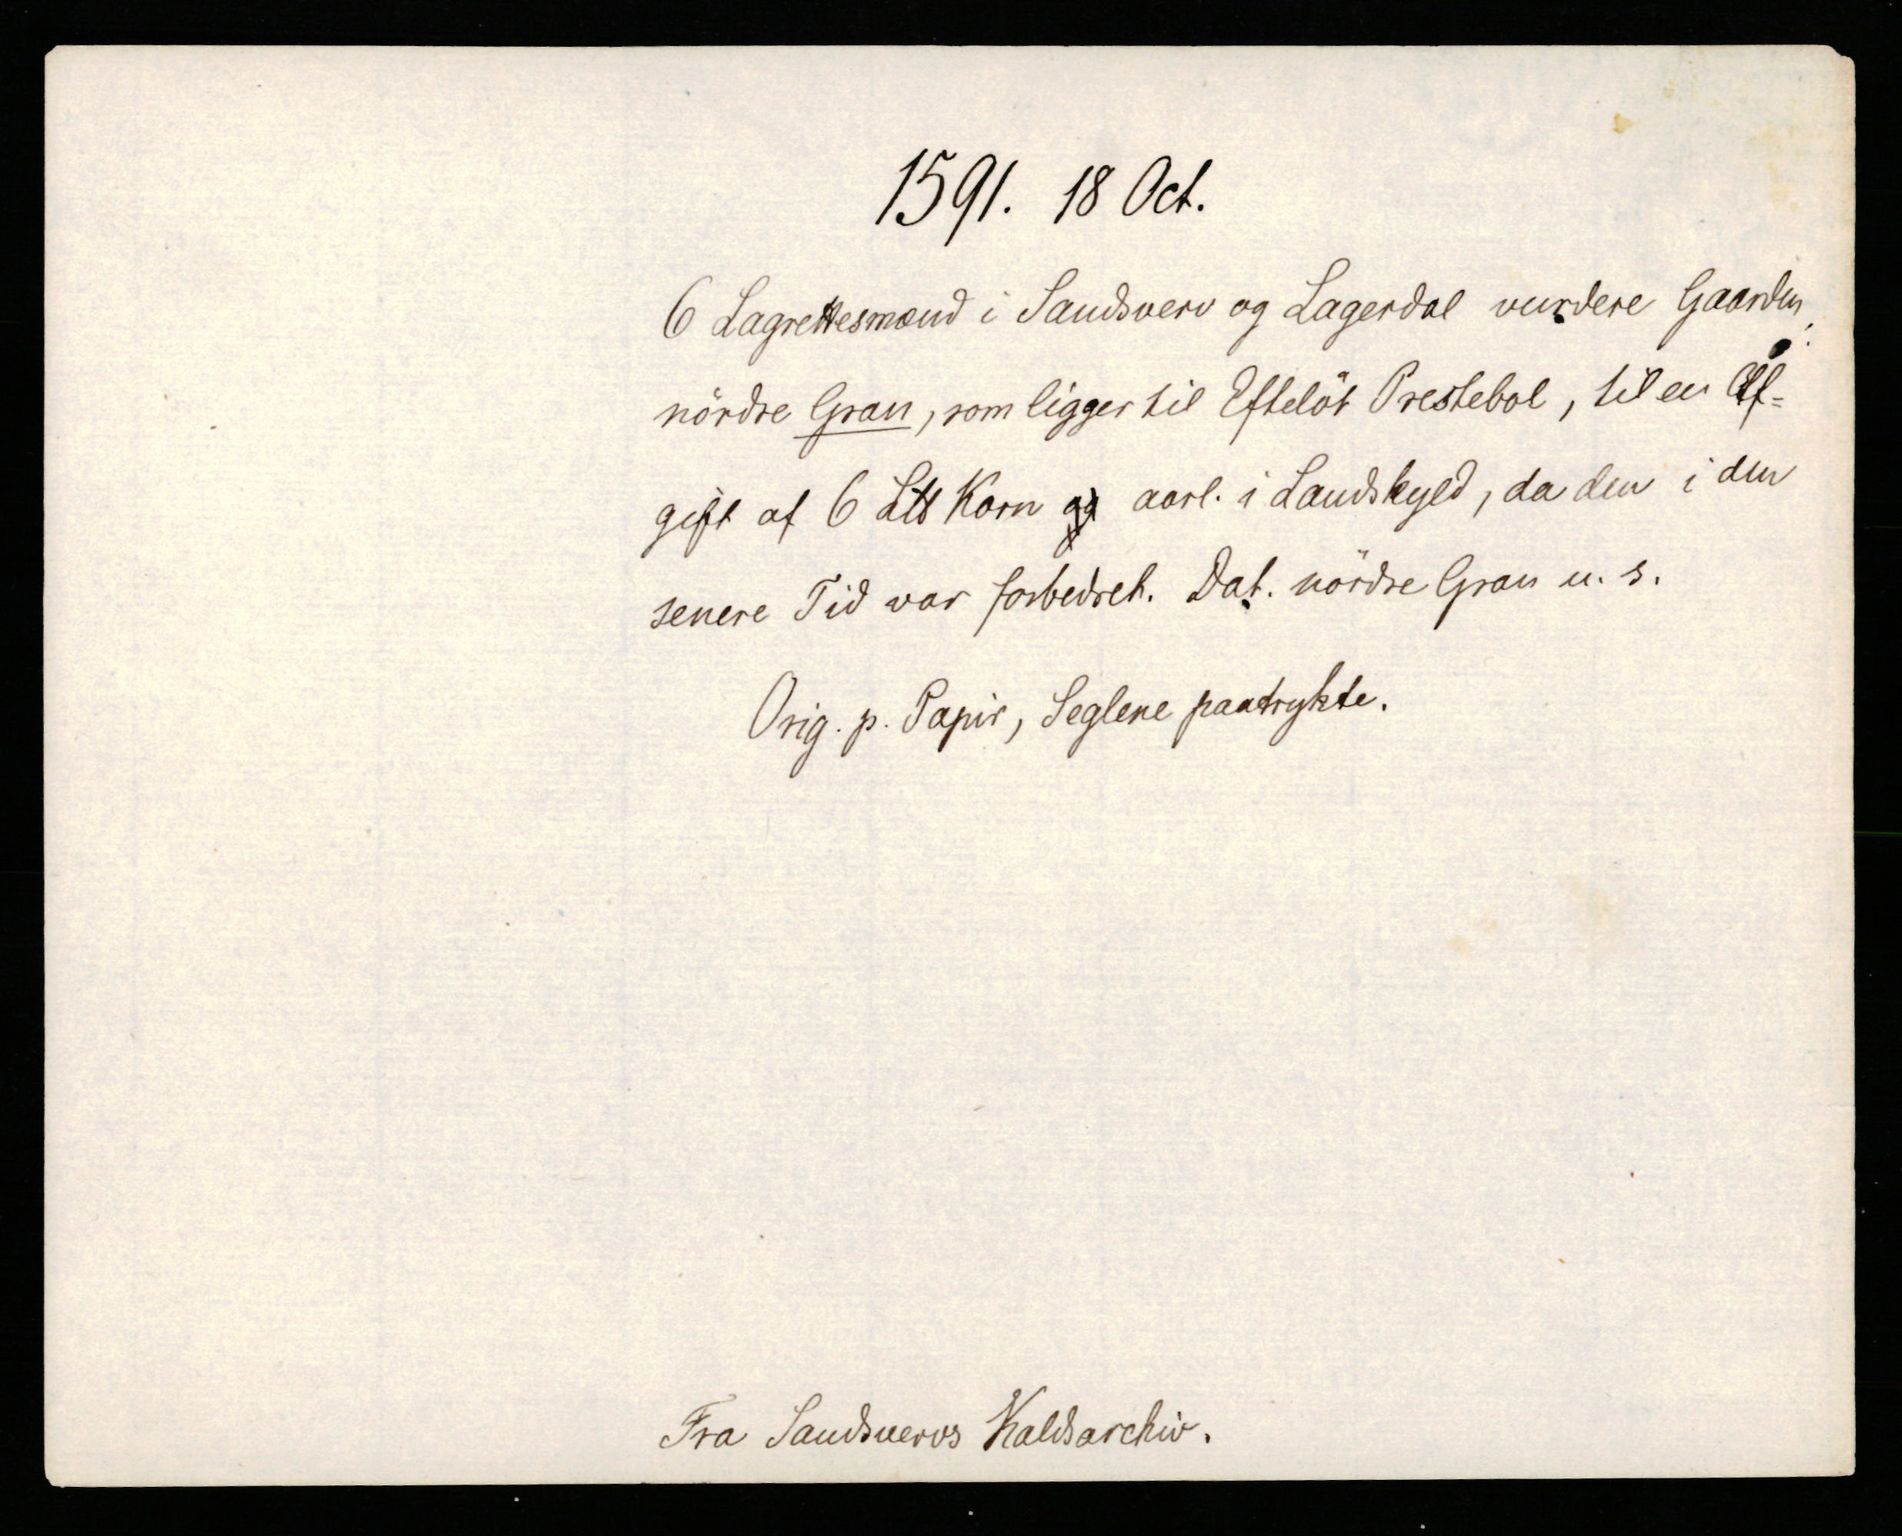 1591. 18 Oct.
6 Lagrettesmænd i Sandsverv og Lagerdal vurdere Gaarden
nördre Gran, som ligger til Eftelöt Prestebol, til en Af=
gift af 6 Ltt Korn og aarl. i Landskyld, da den i den
senere Tid var forbedret. Dat. nördre Gran u. s.
Orig. p. Papir, Seglene paatrykte.
Fra Sandsvervs Kaldsarchiv.